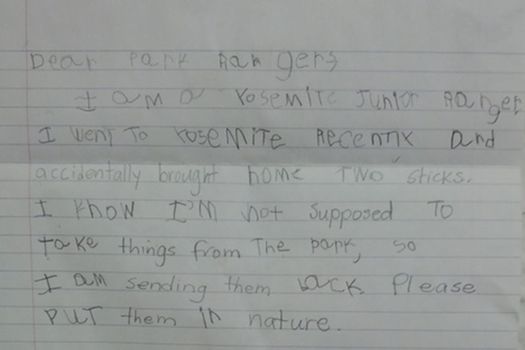 Dear Park Rangers
I am a Yosemite Junior Ranger
I went to Yosemite Recently and
accidentally brought home two sticks.
I know I'm not supposed to
take things from the park, so
I am sending them back Please
put them in nature.